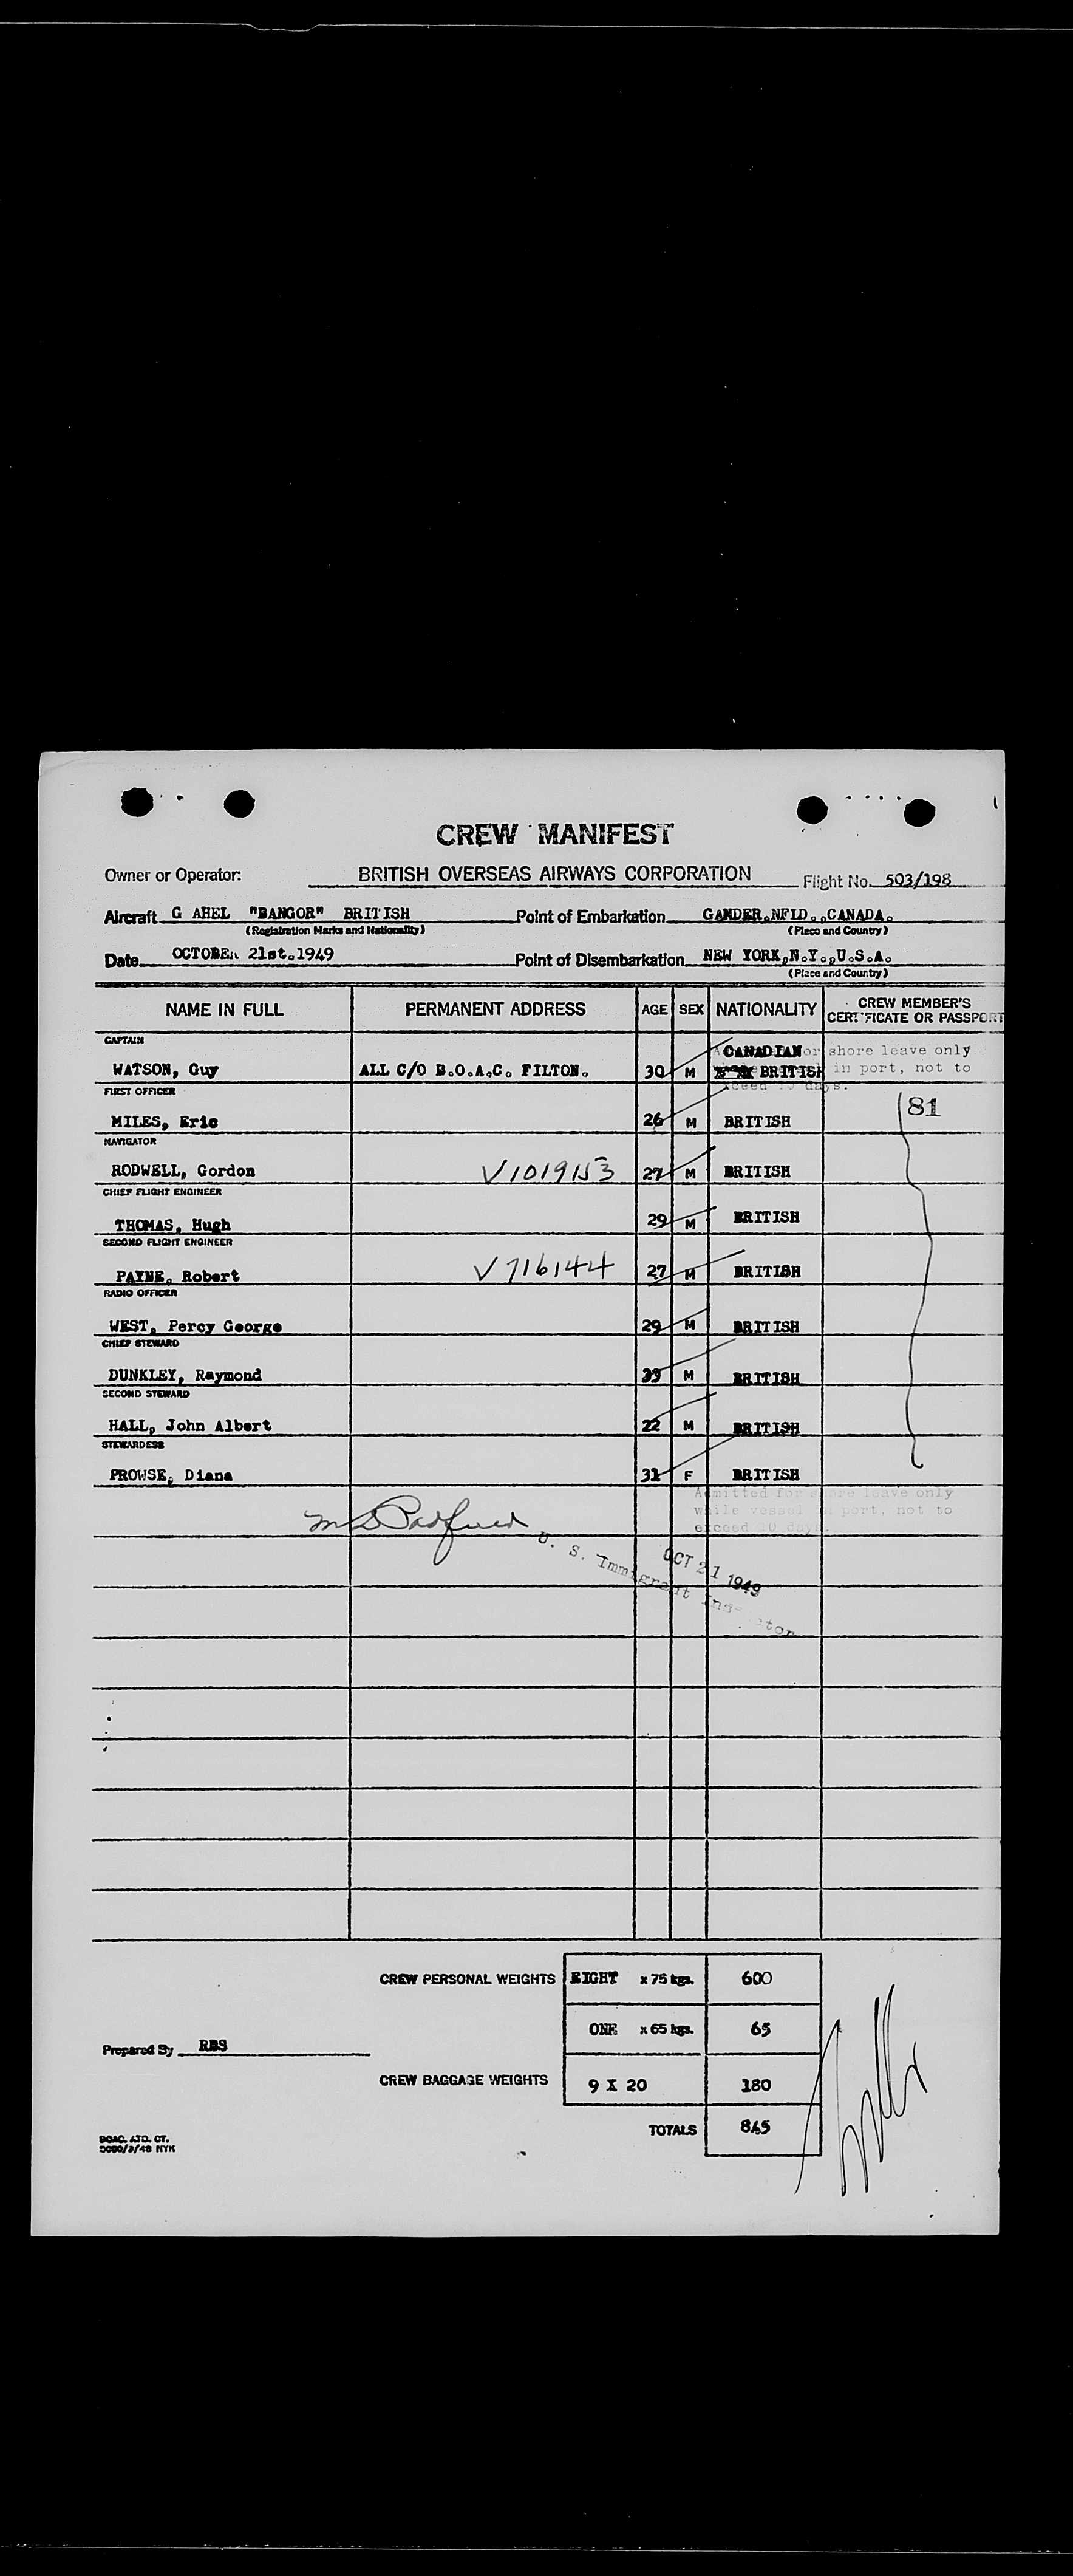 CREW MANIFEST
Owner or Operator: BRITISH OVERSEAS AIRWAYS CORPORATION Flight No. 503/198
Aircraft G AHEL "BANGOR" BRITISH Point of Embarkation GANDER.NFLD.,CANADA.
(Registration Marks and Nationality) (Place and Country)
Date OCTOBER 21st.1949 Point of Disembarkation NEW YORK,N.Y.,U.S.A.
(Place and Country)
NAME IN FULL PERMANENT ADDRESS AGE SEX NATIONALITY CREW MEMBER'S CERTIFICATE OR PASSPORT
CAPTAIN
CANADIAN or shore leave only
WATSON, Guy ALL C/O B.O.A.C. FILTON. 30 M BRITISH in port, not to
exceed 10 days.
FIRST OFFICER
81
MILES, Eric 26 M BRITISH
NAVIGATOR
RODWELL, Gordon V1019153 27 M BRITISH
CHIEF FLIGHT ENGINEER
THOMAS, Hugh 29 M BRITISH
SECOND FLIGHT ENGINEER
PAYNE, Robert V716144 27 M BRITISH
RADIO OFFICER
WEST, Percy George 29 M BRITISH
CHIEF STEWARD
DUNKLEY, Raymond 39 M BRITISH
SECOND STEWARD
HALL, John Albert 22 M BRITISH
STEWARDESS
PROWSE, Diana 31 F BRITISH
Admitted for shore leave only
while vessel in port, not to
exceed 10 days.
OCT 21 1949
U. S. Immigrant Inspector
CREW PERSONAL WEIGHTS EIGHT x 75 kgs. 600
ONE x 65 kgs. 65
Prepared By RBS
CREW BAGGAGE WEIGHTS 9 X 20 180
TOTALS 845
BOAC. ATD. CT.